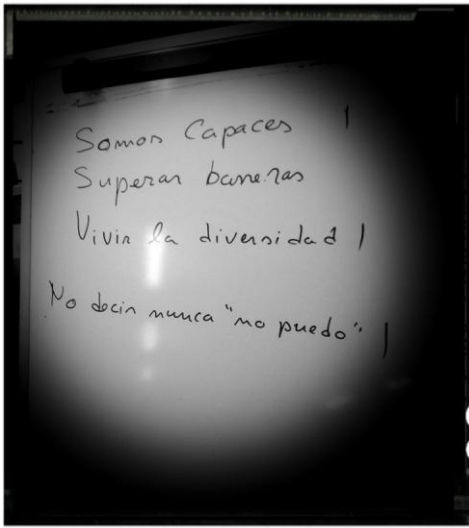 Somos Capaces |
Superar barreras
Vivir la diversidad |
No decir nunca "no puedo" |